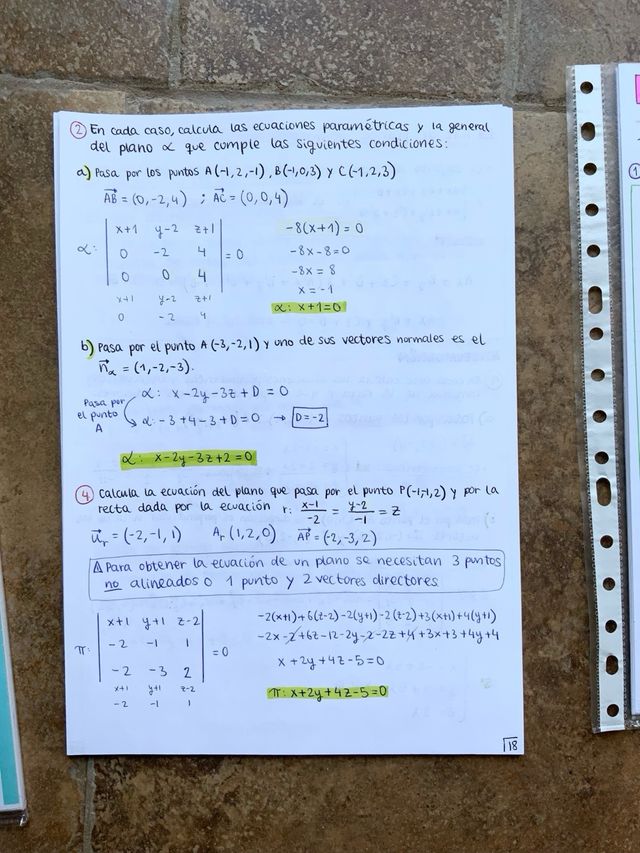 ② En cada caso, calcula las ecuaciones paramétricas y la general
del plano α que cumple las siguientes condiciones:
a) Pasa por los puntos A(-1,2,-1), B(-1,0,3) y C(-1,2,3)
AB = (0,-2,4) ; AC = (0,0,4)
α: | x+1 y-2 z+1 |
| 0 -2 4 | = 0
| 0 0 4 |
x+1 y-2 z+1
0 -2 4
-8(x+1) = 0
-8x-8=0
-8x = 8
x = -1
α: x+1=0
b) Pasa por el punto A(-3,-2,1) y uno de sus vectores normales es el
n_α = (1,-2,-3).
α: x-2y-3z+D = 0
Pasa por
el punto
A
α: -3+4-3+D=0 → D=-2
α: x-2y-3z+2=0
④ Calcula la ecuación del plano que pasa por el punto P(-1,-1,2) y por la
recta dada por la ecuación r: (x-1)/-2 = (y-2)/-1 = z
u_r = (-2,-1,1) A_r (1,2,0) AP = (-2,-3,2)
⚠ Para obtener la ecuación de un plano se necesitan 3 puntos
no alineados o 1 punto y 2 vectores directores
π: | x+1 y+1 z-2 |
| -2 -1 1 | = 0
| -2 -3 2 |
x+1 y+1 z-2
-2 -1 1
-2(x+1)+6(z-2)-2(y+1)-2(z-2)+3(x+1)+4(y+1)
-2x-2+6z-12-2y-2-2z+4+3x+3+4y+4
x+2y+4z-5=0
π: x+2y+4z-5=0
18